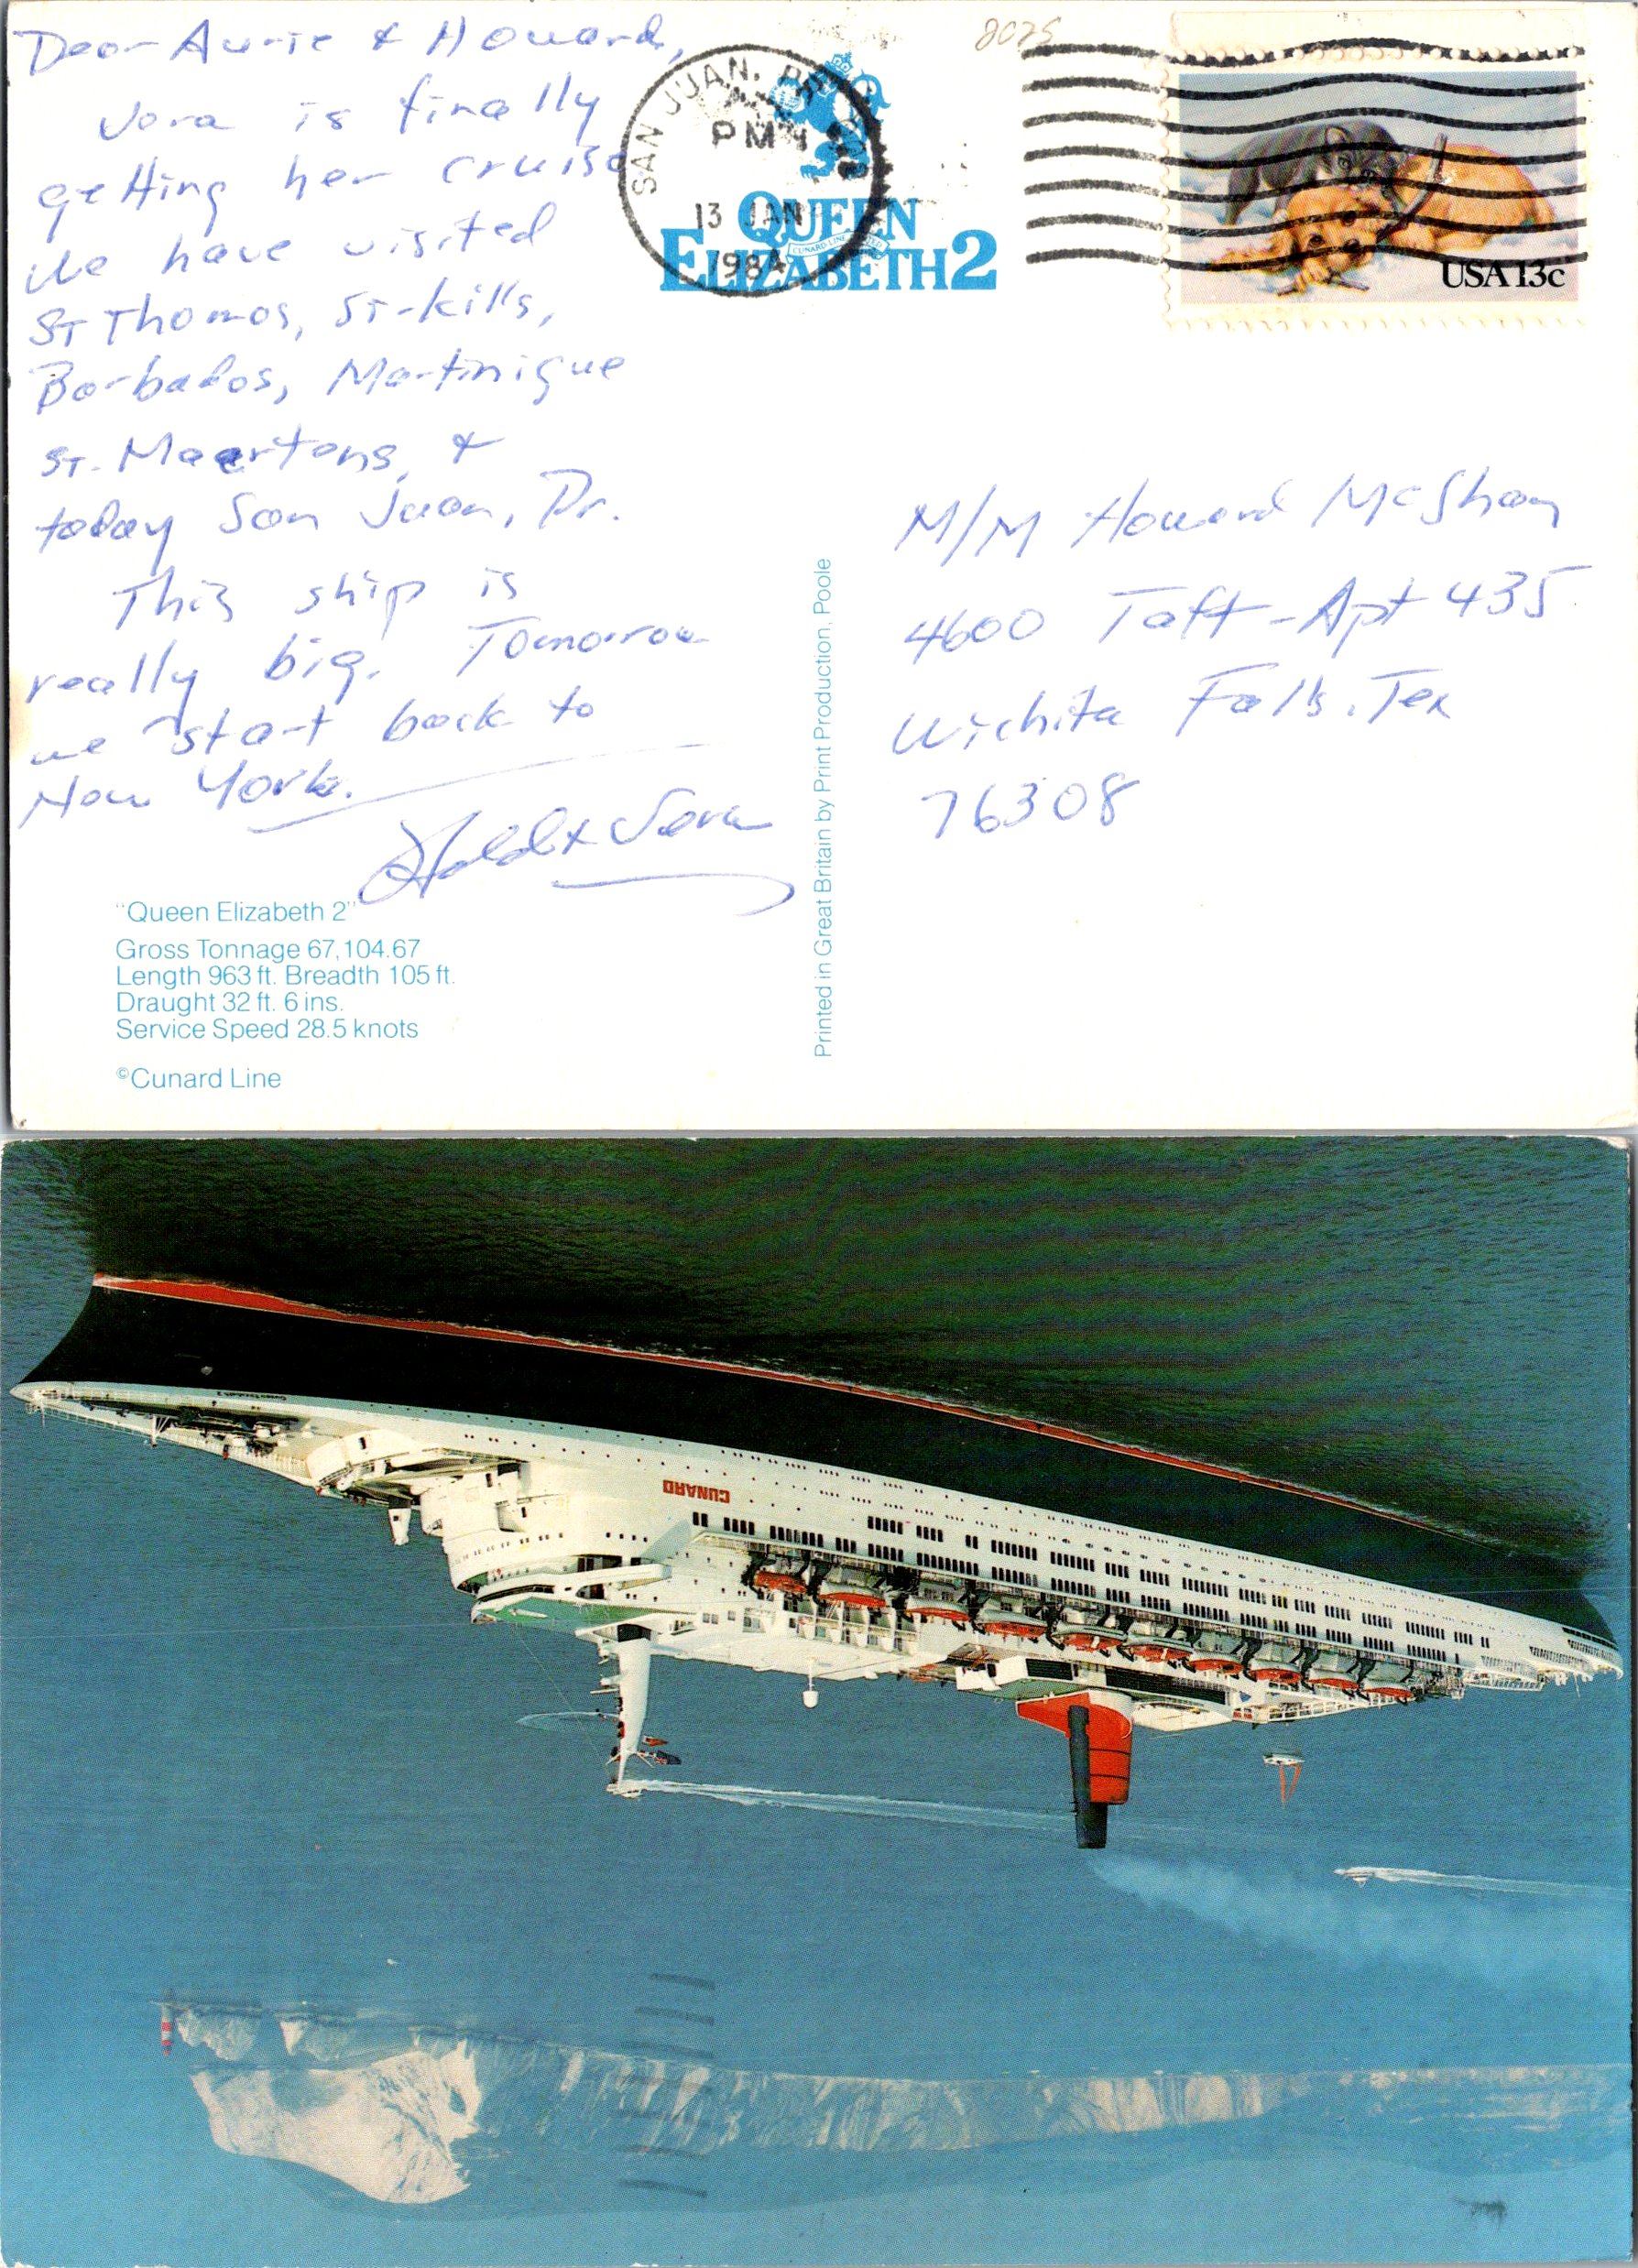 Dear Aurie & Howard,
Vera is finally
getting her cruise
We have visited
ST Thomas, ST-kills,
Barbados, Martinique
ST. Maartens, &
today San Juan, Pr.
This ship is
really big. Tomorrow
we start back to
New York.
& Vera
2025
SAN JUAN, PR
PM
13 JAN
1984
QUEEN
CUNARD LINE LIMITED
ELIZABETH 2
USA 13c
M/M Howard McShany
4600 Taft-Apt 435
Wichita Falls, Tex
76308
Printed in Great Britain by Print Production, Poole
"Queen Elizabeth 2"
Gross Tonnage 67,104.67
Length 963 ft. Breadth 105 ft.
Draught 32 ft. 6 ins.
Service Speed 28.5 knots
©Cunard Line
CUNARD